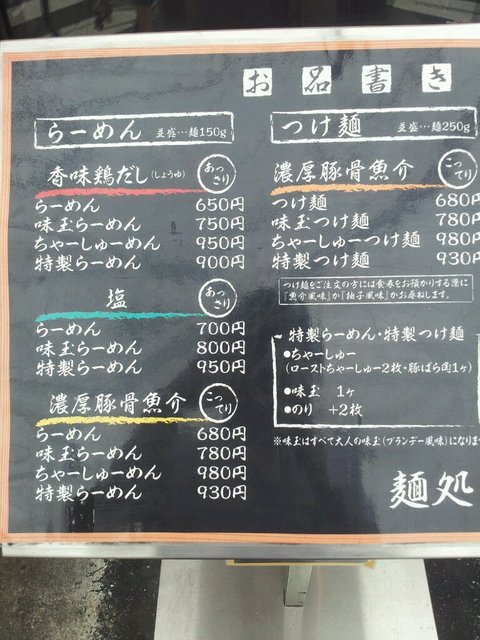 お品書き
らーめん 並盛…麺150g
香味鶏だし(しょうゆ) あっさり
らーめん 650円
味玉らーめん 750円
ちゃーしゅーめん 950円
特製らーめん 900円
塩 あっさり
らーめん 700円
味玉らーめん 800円
特製らーめん 950円
濃厚豚骨魚介 こってり
らーめん 680円
味玉らーめん 780円
ちゃーしゅーめん 980円
特製らーめん 930円
つけ麺 並盛…麺250g
濃厚豚骨魚介 こってり
つけ麺 680円
味玉つけ麺 780円
ちゃーしゅーつけ麺 980円
特製つけ麺 930円
つけ麺をご注文の方には食券をお預かりする際に
「魚介風味」か「柚子風味」かお尋ねします。
特製らーめん・特製つけ麺
●ちゃーしゅー
(ローストちゃーしゅー2枚・豚ばら肉1ヶ)
●味玉 1ヶ
●のり +2枚
※味玉はすべて大人の味玉(ブランデー風味)になりま
麺処